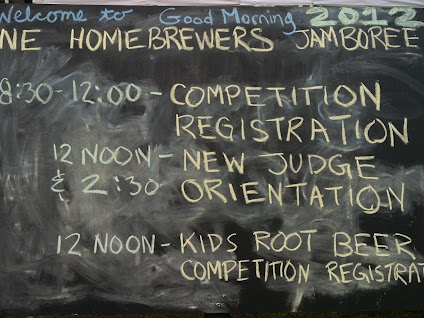 Welcome to Good Morning 2012
NE HOMEBREWERS JAMBOREE
8:30-12:00 - COMPETITION
REGISTRATION
12 NOON - NEW JUDGE
& 2:30 ORIENTATION
12 NOON - KIDS ROOT BEER
COMPETITION REGISTRAT